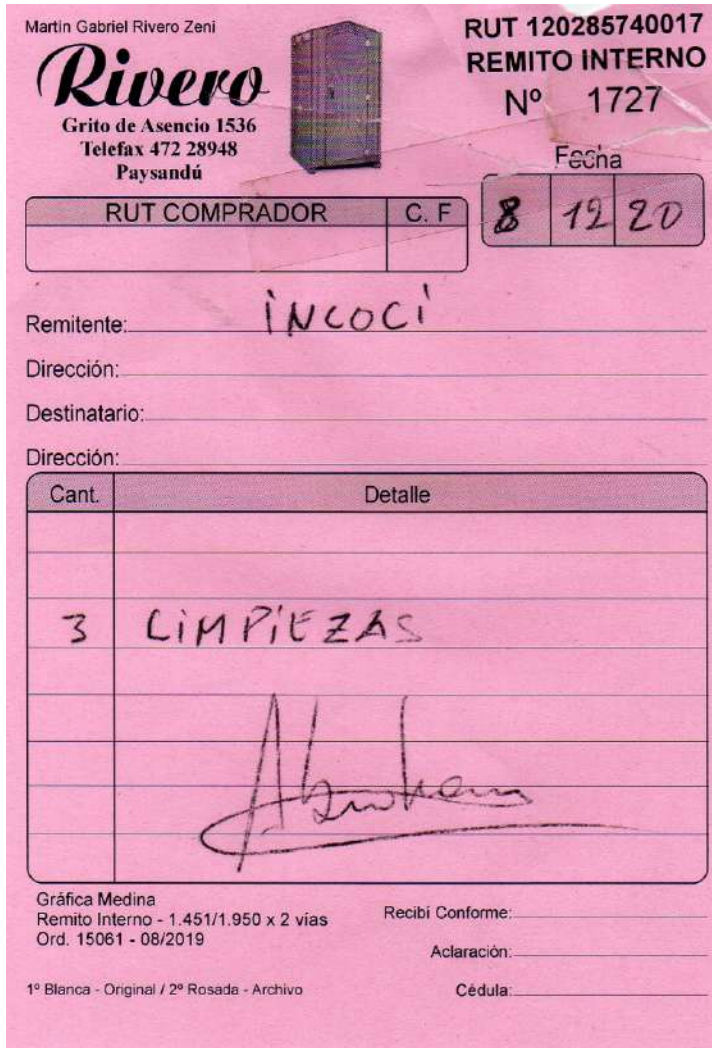 Martin Gabriel Rivero Zeni
Rivero
Grito de Asencio 1536
Telefax 472 28948
Paysandú
RUT 120285740017
REMITO INTERNO
Nº 1727
Fecha
8 12 20
RUT COMPRADOR C. F
Remitente: INCOCI
Dirección:
Destinatario:
Dirección:
Cant. Detalle
3 LIMPIEZAS
Gráfica Medina
Remito Interno - 1.451/1.950 x 2 vías
Ord. 15061 - 08/2019
1º Blanca - Original / 2º Rosada - Archivo
Recibí Conforme:
Aclaración:
Cédula: